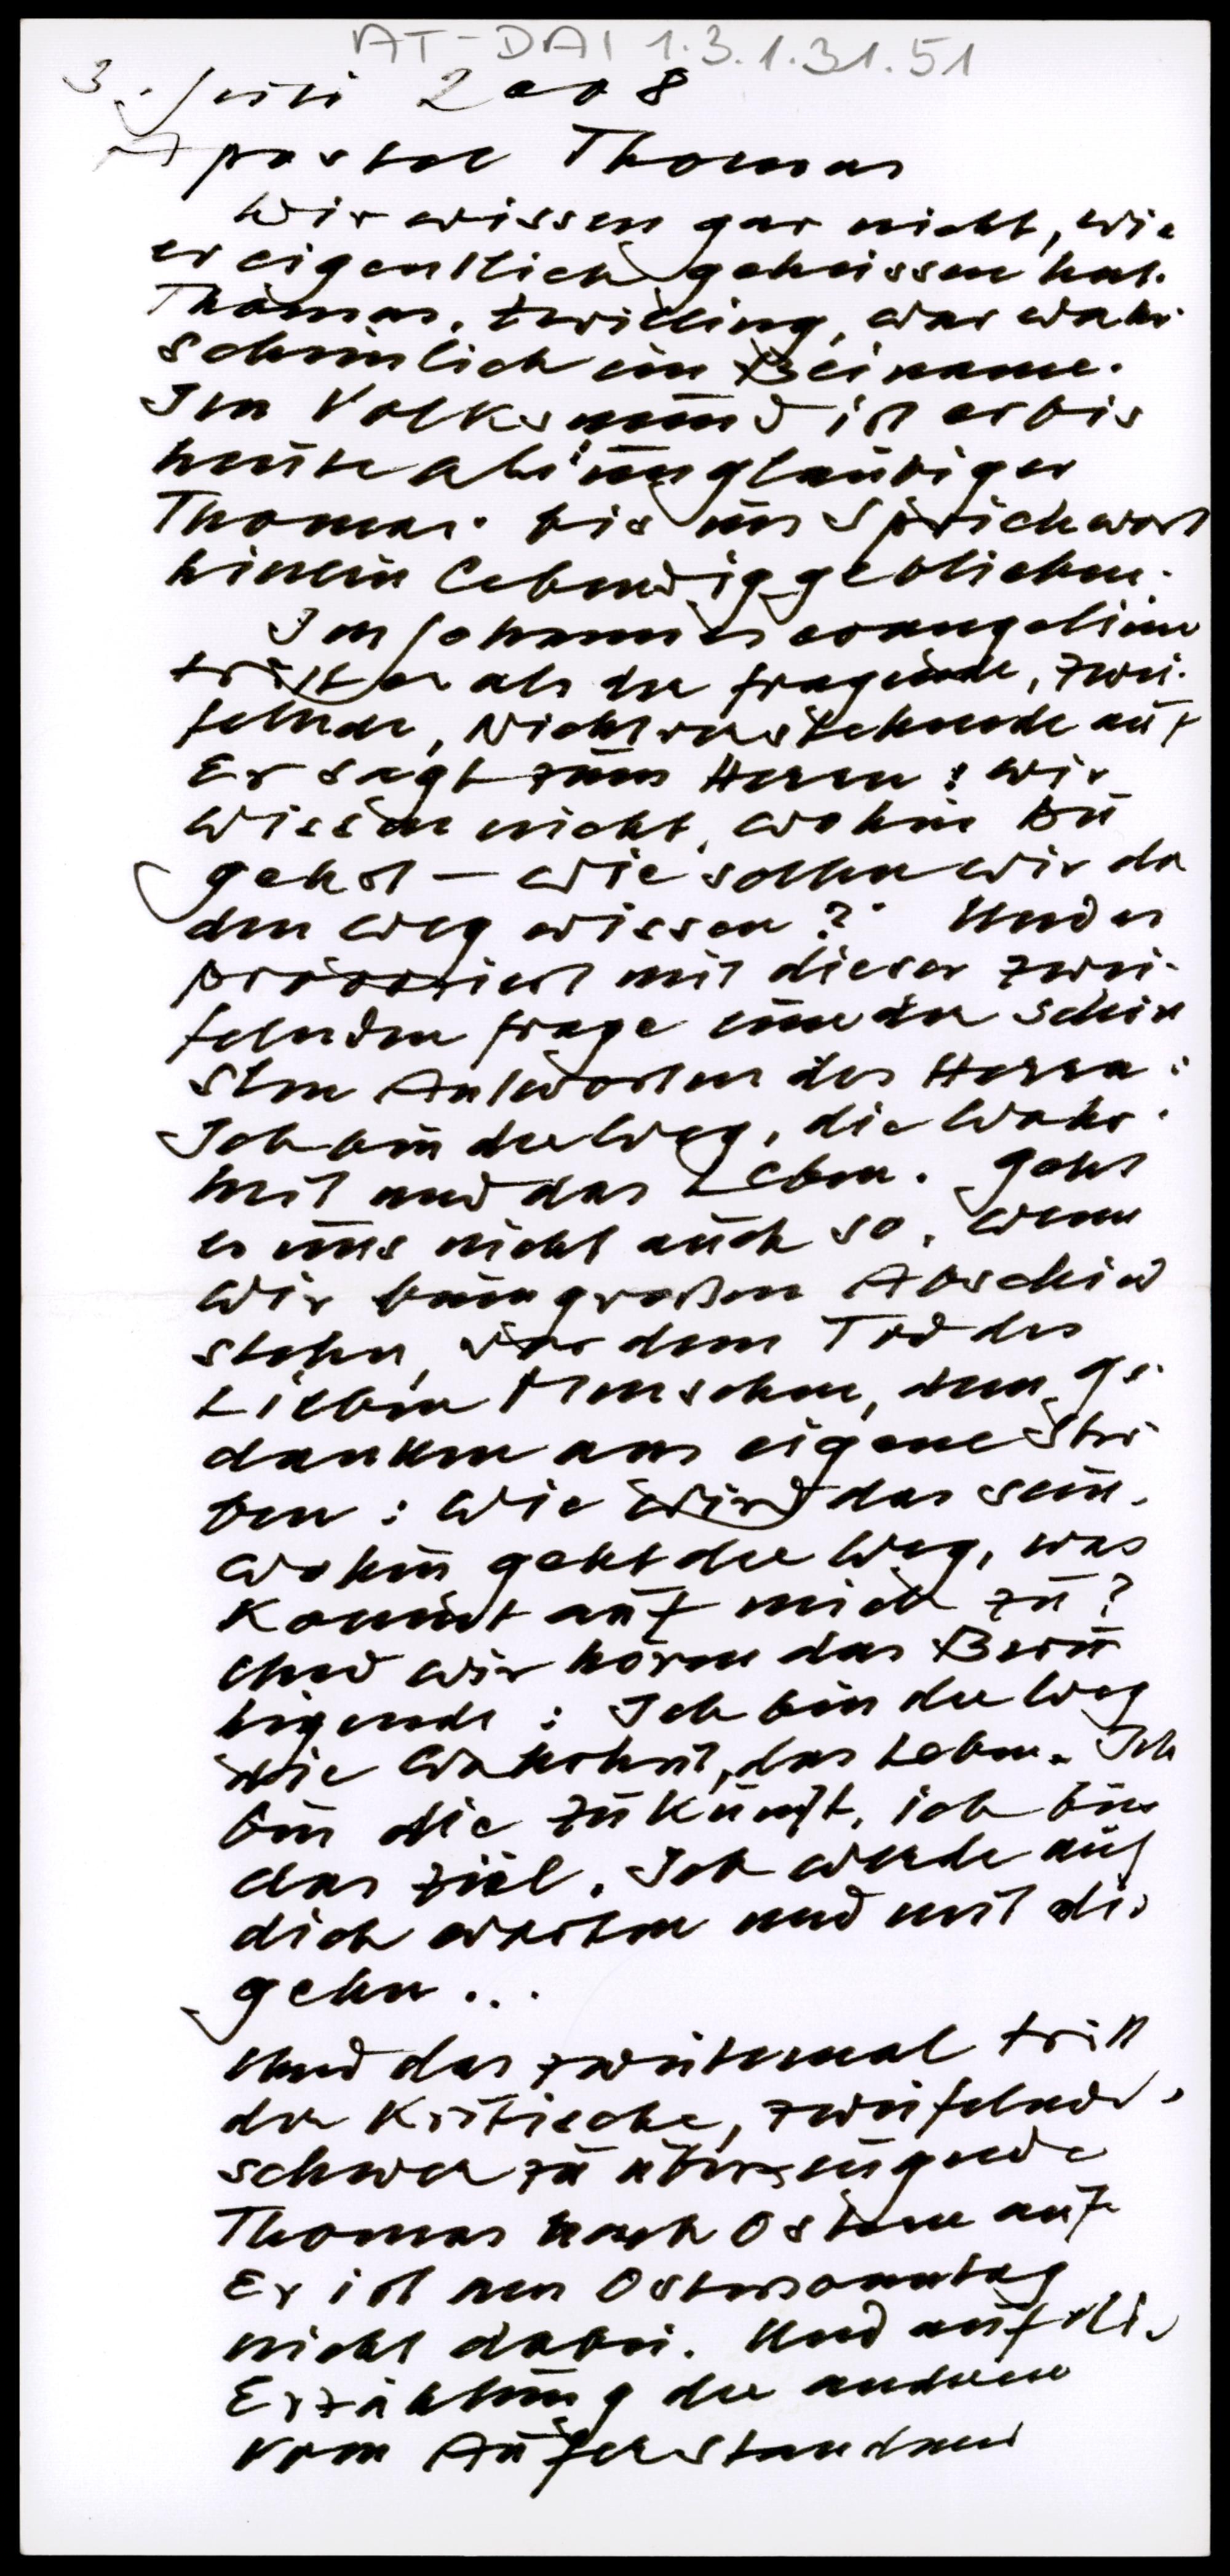 AT-DAI 1.3.1.31.51
3. Juli 2008
Apostel Thomas
Wir wissen gar nicht, wie
er eigentlich geheissen hat.
Thomas, Zwilling, war wahr-
scheinlich ein Beiname.
Im Volksmund ist er bis
heute als "ungläubiger
Thomas" bis ins Sprichwort
hinein lebendig geblieben.
Im Johannesevangelium
tritt er als der fragende, zwei-
felnde, Nichtverstehende auf
Er sagt zum Herrn: "Wir
wissen nicht, wohin Du
gehst – wie sollen wir da
den Weg wissen?" Und er
provoziert mit dieser zwei-
felnden Frage eine der schön
sten Antworten des Herrn:
Ich bin der Weg, die Wahr-
heit und das Leben. Geht
es uns nicht auch so, wenn
wir beim großen Abschied
stehn, vor dem Tod des
Lieben Menschen, dem Ge-
danken ans eigene Ster
ben: Wie wird das sein.
Wohin geht der Weg, was
kommt auf mich zu?
Und wir hören das Beru
higende: Ich bin der Weg
die Wahrheit, das Leben. Ich
bin die Zukunft, ich bin
das Ziel. Ich werde auf
dich warten und mit dir
gehn...
Und das zweitemal tritt
der Kritische, zweifelnde,
schwer zu überzeugende
Thomas nach Ostern auf
Er ist am Ostersonntag
nicht dabei. Und auf die
Erzählung der anderen
vom Auferstandnen